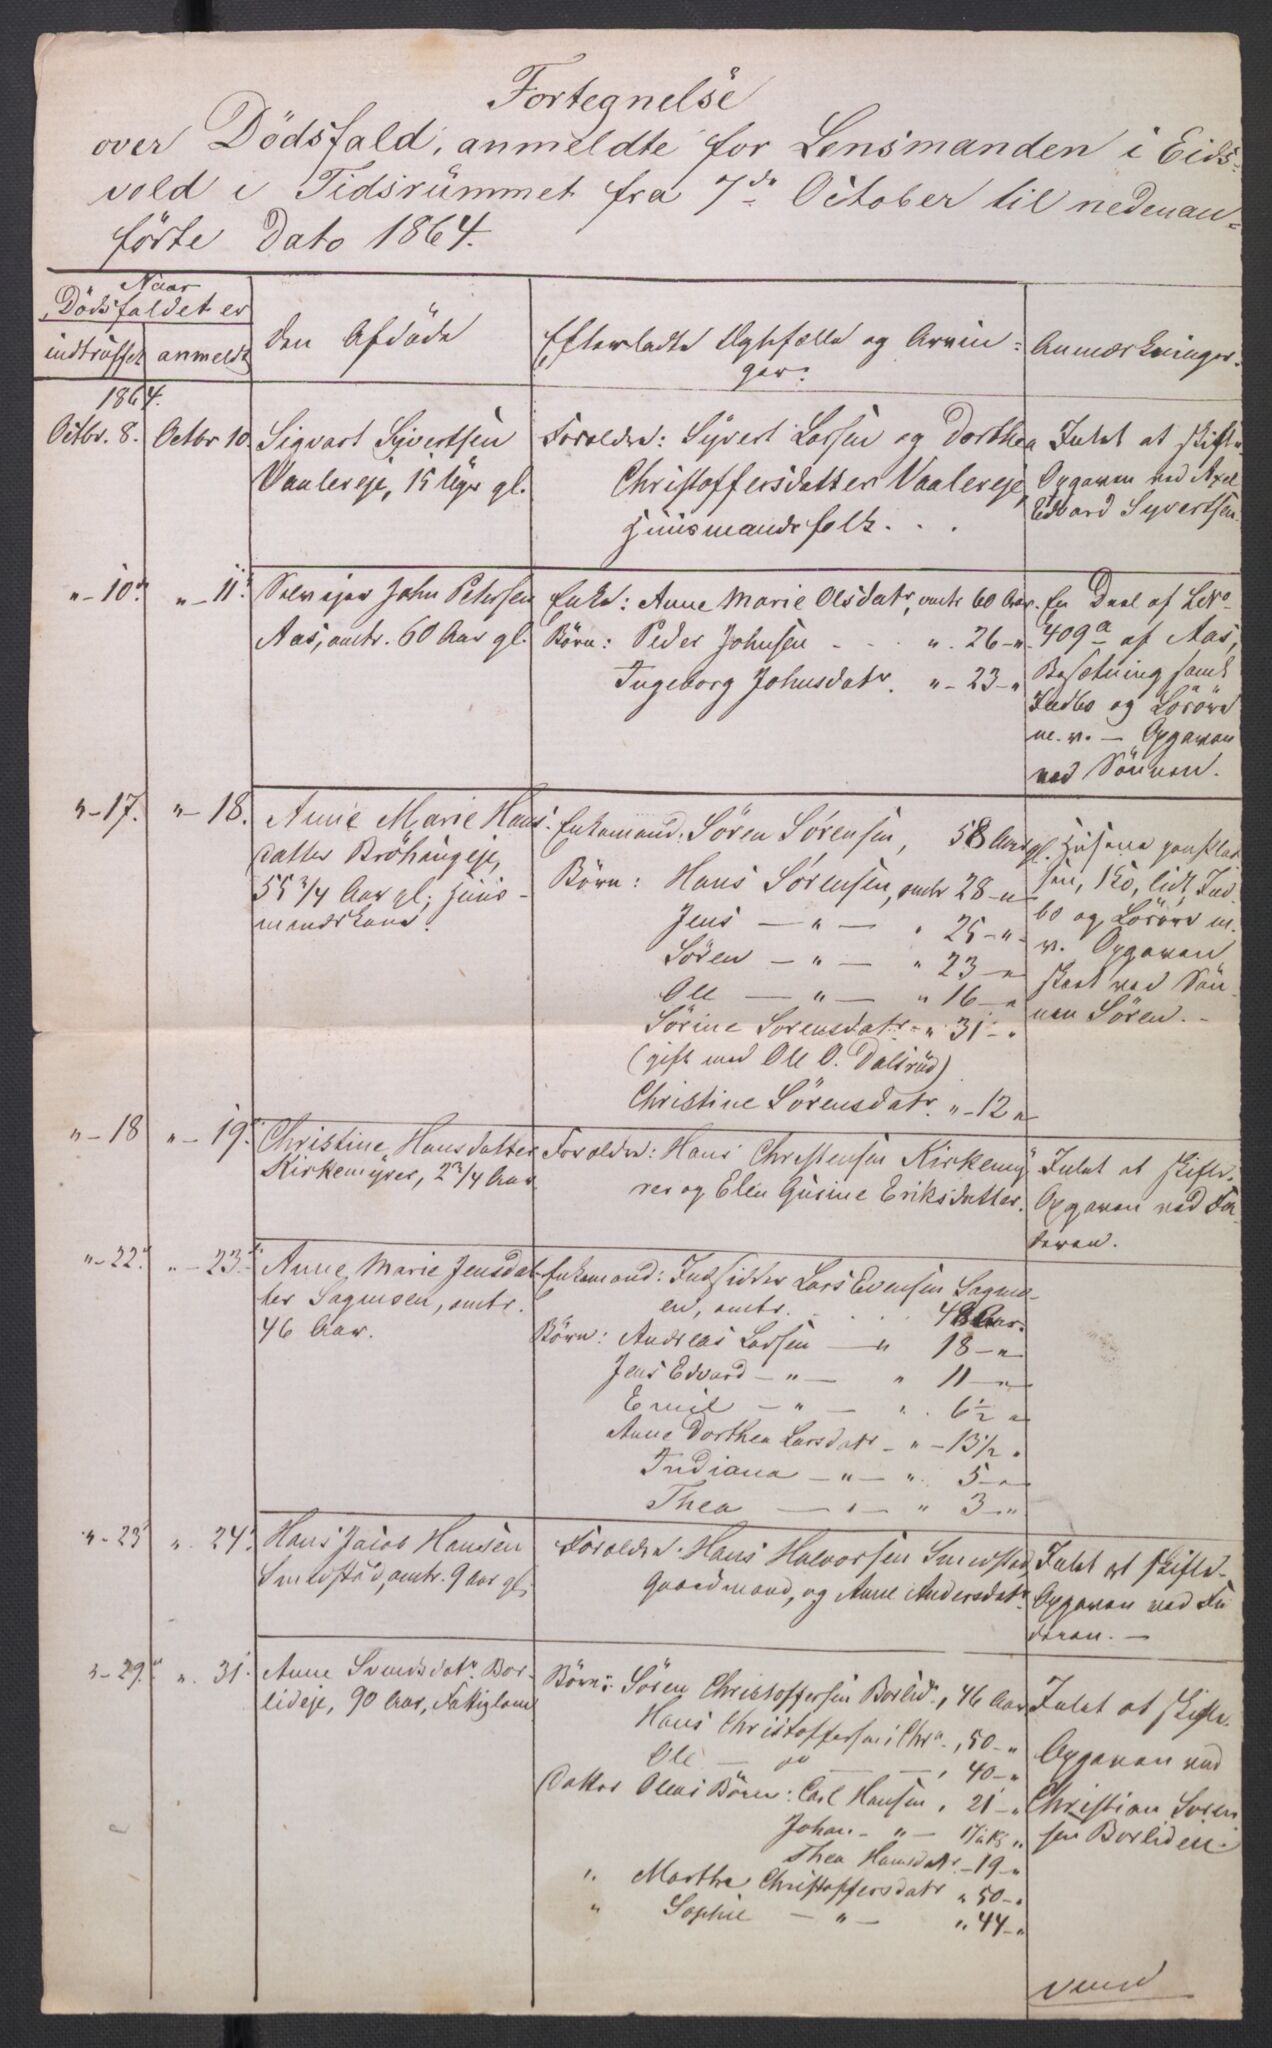 Fortegnelse
over Dödsfald, anmeldte for Lensmanden i Eids-
vold i Tidsrummet fra 7de October til nedenan-
førte Dato 1864.
Naar
Dödsfaldet er
indtruffet
anmeldt
den Afdöde
Efterladte Ægtefælle og Arvin-
ger.
Anmærkninger.
1864.
Octbr. 8.
Octbr 10.
Sigvart Syvertsen
Vaalereje, 15 Uger gl.
Forældre: Syvert Larsen og Dorthea
Christoffersdatter Vaalereje,
Huusmandsfolk. . .
Intet at skifte
Opgaven ved Axel
Edvard Syvertsen.
" - 10de
" - 11te
Selvejer John Petersen
Aas, omtr. 60 Aar gl.
Enke: Anne Marie Olsdatr, omtr 60 Aar.
Børn: Peder Johnsen - . . ". 26 - "
Ingeborg Johnsdatr. " - 23 - "
En Deel af LNo
409a af Aas,
Besætning samt
Indbo og Lösöre
m. v. - Opgaven
ved Sönnen.
" - 17.
" - 18.
Anne Marie Hans-
datter Bröhaugeje,
55 3/4 Aar gl., Huus-
mandskone.
Enkemand: Sören Sörensen, 58 Aar gl.
Börn: Hans Sörensen, omtr 28 - "
Jens — " — " 25 - "
Sören — " — " 23 - "
Ole — " — " 16 - "
Sörine Sorensdatr - " 31 - "
(gift med Ole O. Dalsrud)
Christine Sörensdatr. " - 12 "
Husene paa Plad-
sen, 1 Ko, lidt Ind-
bo og Lösöre m.
v. Opgaven
skeet ved Sön-
nen Sören. -
" - 18
" - 19.
Christine Hansdatter
Kirkemyrer, 2 3/4 Aar
Forældre: Hans Christensen Kirkemy
rer og Elen Gusine Eriksdatter.
Intet at skifte.
Opgaven ved Fa-
deren.
" - 22.
" - 23.
Anne Marie Jensdat-
ter Sagmoen, omtr.
46 Aar.
Enkemand: Indsidder Lars Evensen Sagmo-
en, omtr. . . . 48 Aar.
Börn: Andreas Larsen — " 18 - "
Jens Edvard - " — " 11 - "
Emil — " — " . 6 1/2 "
Anne Dorthea Larsdatr - " - 13 1/2 "
Indiana — " — " . 5 - "
Thea — " — " 3 - "
" - 23
" . 24.
Hans Jacob Hansen
Smedstad, omtr. 9 Aar gl.
Forældre. Hans Halvorsen Smedstad,
Gaardmand, og Anne Andersdatr.
Intet at skifte.
Opgaven ved Fa
deren. —
" - 29.
" . 31.
Anne Svendsdatr. Bor-
lideje, 90 Aar, Fattiglem
Börn: Sören Christoffersen Borlid., 46 Aar
Hans Christoffersen i Chra., 50 - "
Ole — " — , 40 - "
Datter Oleas Börn: Carl Hansen, 21 - "
Johan - " — 17 "
Thea Hansdatr. - 19 - "
" Marthe Christoffersdatr " 50 - "
" Sophie — " — " 44 - "
Intet at skifte.
Opgaven ved
Christian Soren
sen Borlideie.
vend